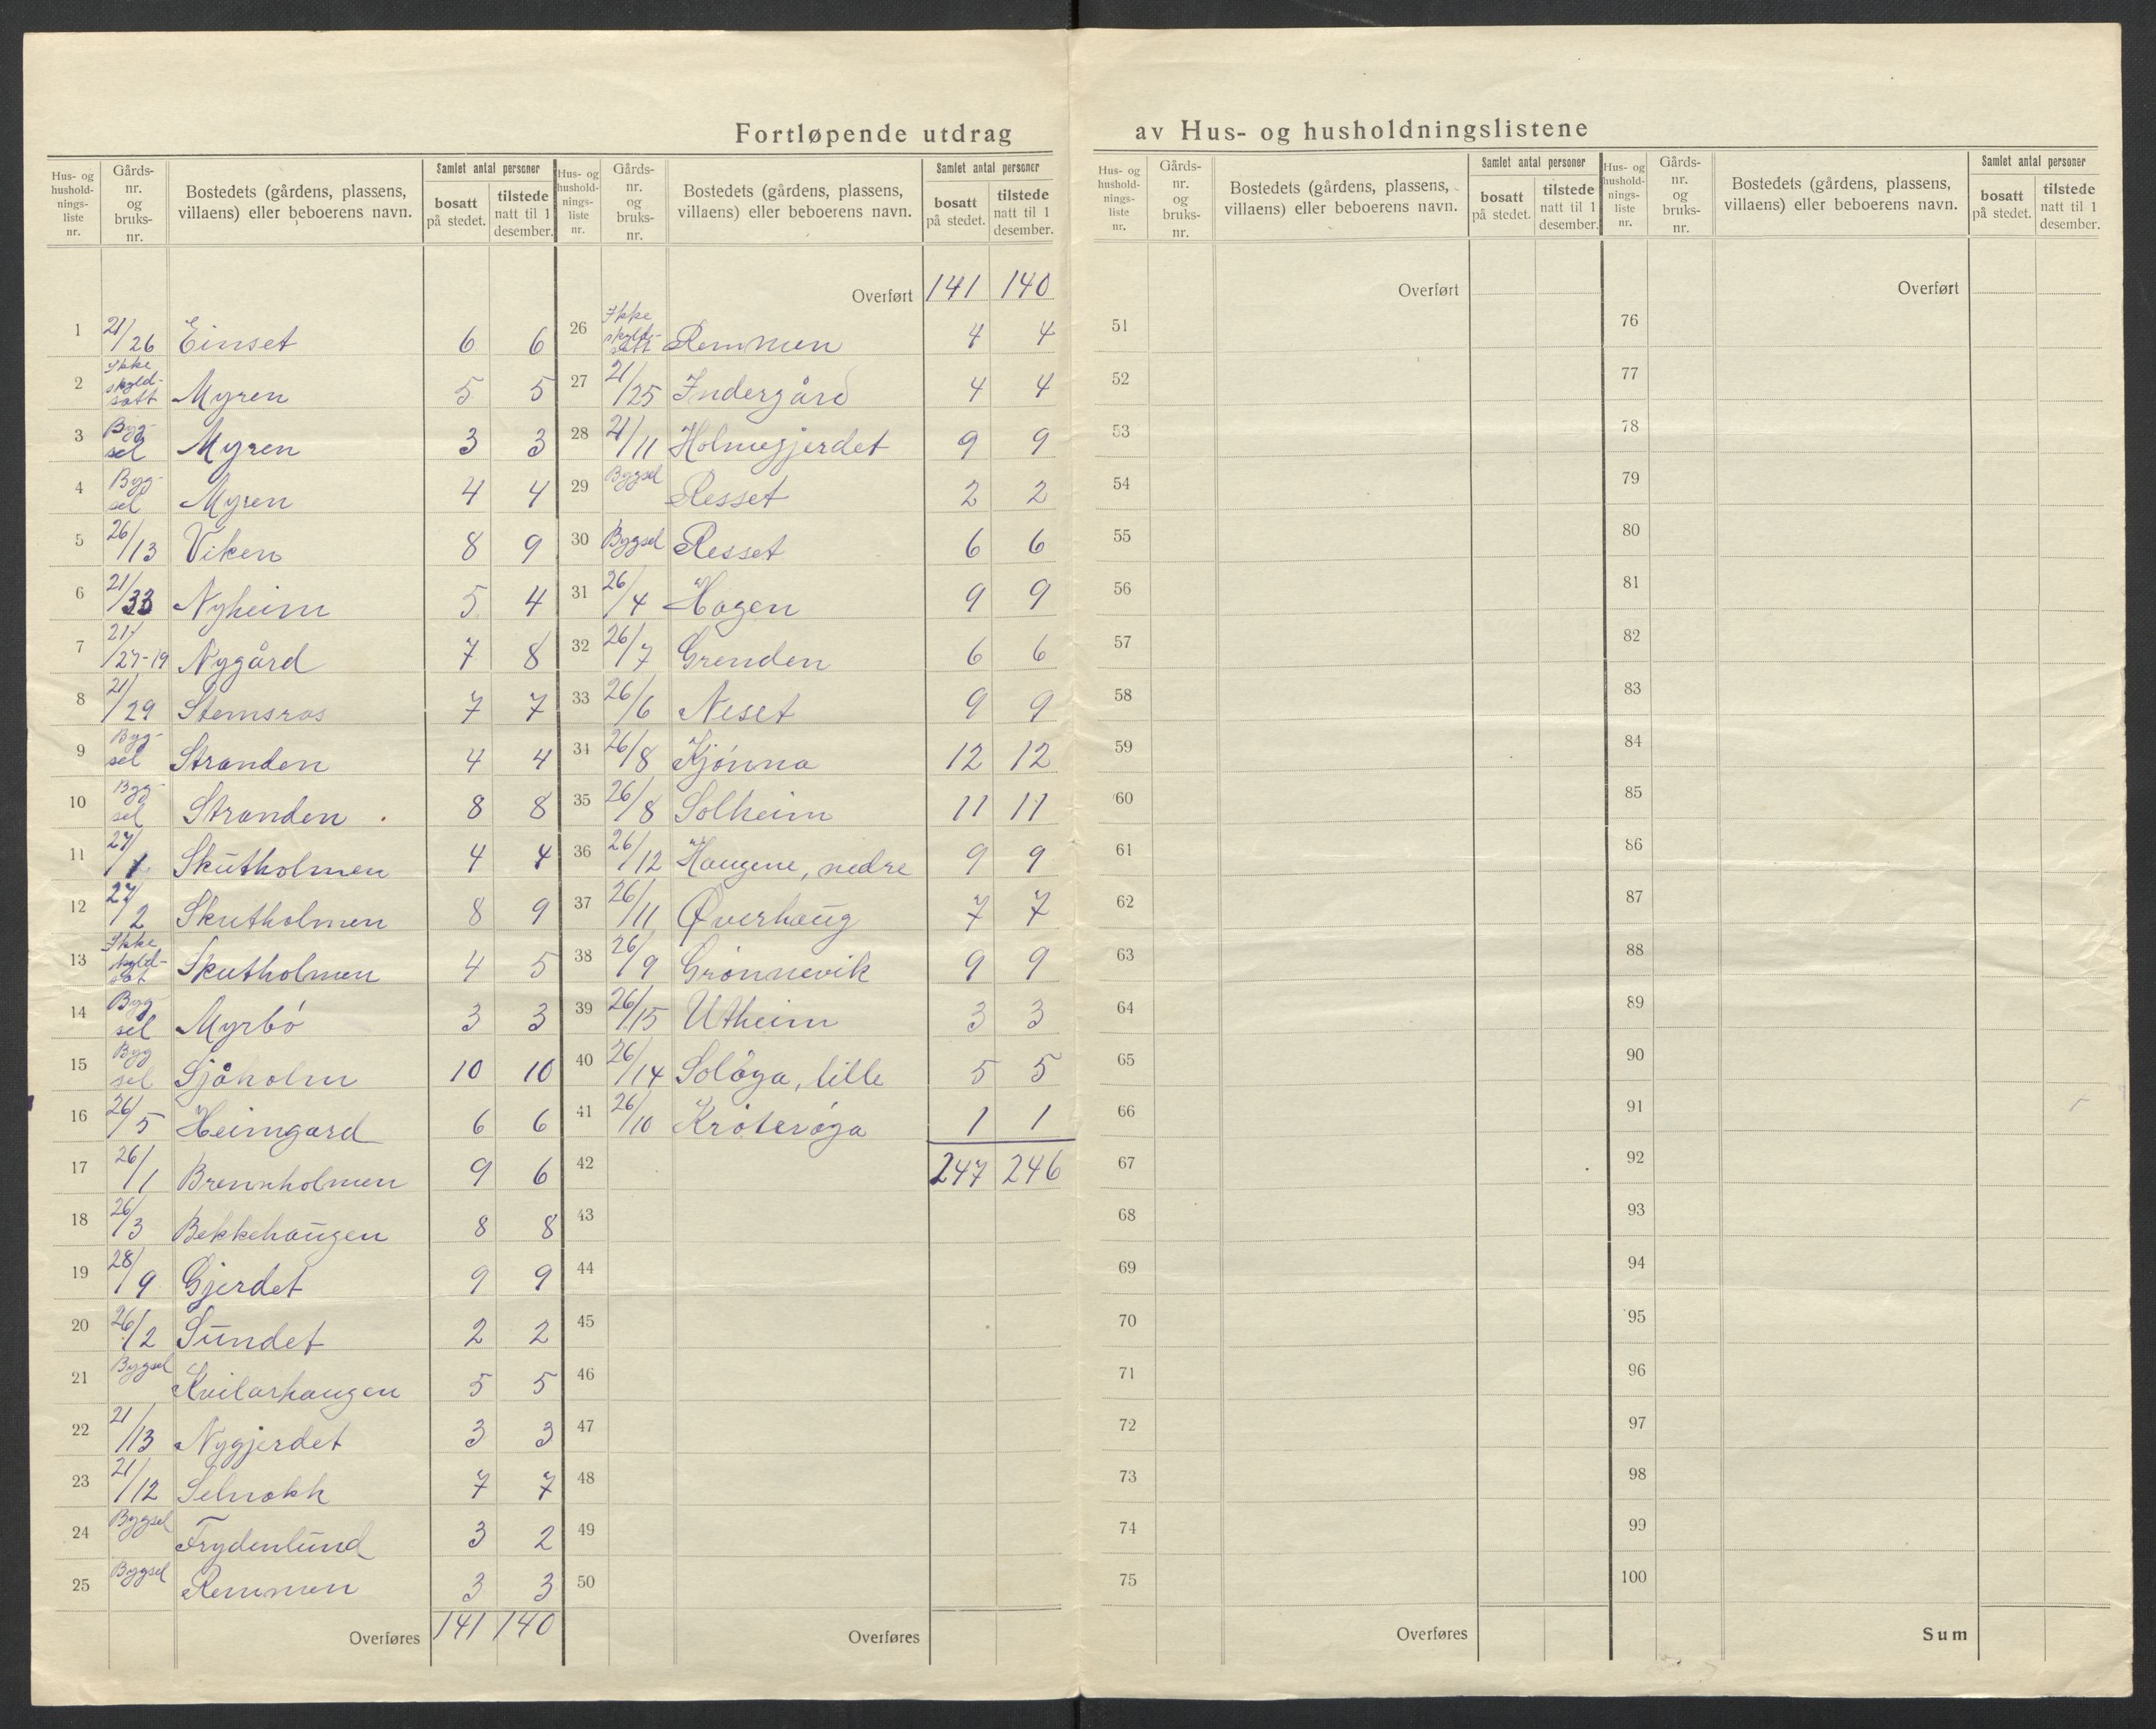 Fortløpende utdrag av Hus- og husholdningslistene
Hus- og hushold-nings-liste nr. | Gårds-nr. og bruks-nr. | Bostedets (gårdens, plassens, villaens) eller beboerens navn. | Samlet antal personer | bosatt på stedet. | tilstede natt til 1 desember.
1 21/26 Einset 6 6
2 Ikke skyld-satt Myren 5 5
3 Byg-sel Myren 3 3
4 Byg-sel Myren 4 4
5 26/13 Viken 8 9
6 21/33 Nyheim 5 4
7 21/27-19 Nygård 7 8
8 21/29 Stemsras 7 7
9 Byg-sel Stranden 4 4
10 Byg-sel Stranden 8 8
11 27/1 Skutholmen 4 4
12 27/2 Skutholmen 8 9
13 Ikke skyld-sat Skutholmen 4 5
14 Byg-sel Myrbö 3 3
15 Byg sel Sjåholm 10 10
16 26/5 Heimgard 6 6
17 26/1 Brennholmen 9 6
18 26/3 Bekkehaugen 8 8
19 28/9 Gjerdet 9 9
20 26/2 Sundet 2 2
21 Bygsel Kvilarhaugen 5 5
22 21/13 Nygjerdet 3 3
23 21/12 Selnakk 7 7
24 Bygsel Frydenlund 3 2
25 Bygsel Remmen 3 3
Overføres 141 140
Hus- og hushold-nings-liste nr. | Gårds-nr. og bruks-nr. | Bostedets (gårdens, plassens, villaens) eller beboerens navn. | Samlet antal personer | bosatt på stedet. | tilstede natt til 1 desember.
Overført 141 140
26 Ikke skyld-satt Remmen 4 4
27 21/25 Indergård 4 4
28 21/11 Holmegjerdet 9 9
29 Bygsel Resset 2 2
30 Bygsel Resset 6 6
31 26/4 Hagen 9 9
32 26/7 Grenden 6 6
33 26/6 Neset 9 9
34 26/8 Kjönna 12 12
35 26/8 Solheim 11 11
36 26/12 Haugene, nedre 9 9
37 26/11 Øverhaug 7 7
38 26/9 Grönnevik 9 9
39 26/15 Utheim 3 3
40 26/14 Solöya, lille 5 5
41 26/10 Kråteröya 1 1
42 247 246
43
44
45
46
47
48
49
50
Overføres
Hus- og hushold-nings-liste nr. | Gårds-nr. og bruks-nr. | Bostedets (gårdens, plassens, villaens) eller beboerens navn. | Samlet antal personer | bosatt på stedet. | tilstede natt til 1 desember.
Overført
51
52
53
54
55
56
57
58
59
60
61
62
63
64
65
66
67
68
69
70
71
72
73
74
75
Overføres
Hus- og hushold-nings-liste nr. | Gårds-nr. og bruks-nr. | Bostedets (gårdens, plassens, villaens) eller beboerens navn. | Samlet antal personer | bosatt på stedet. | tilstede natt til 1 desember.
Overført
76
77
78
79
80
81
82
83
84
85
86
87
88
89
90
91
92
93
94
95
96
97
98
99
100
Sum